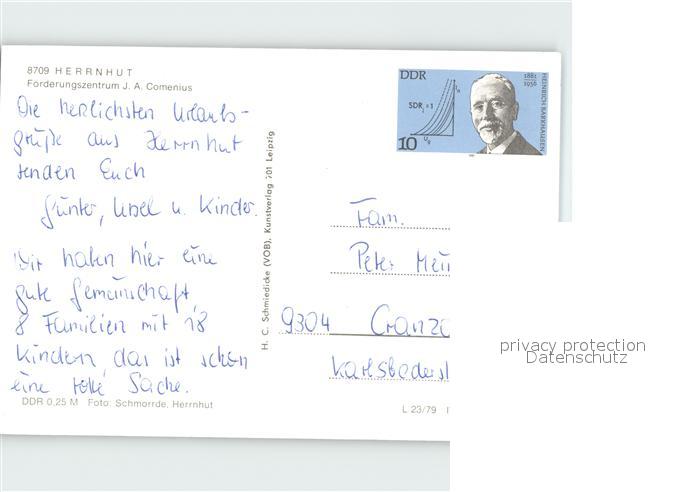 8709 HERRNHUT
Förderungszentrum J. A. Comenius
Die herzlichsten Urlaubs-
grüße aus Herrnhut
senden Euch
Günter, Ursel u. Kinder.
Wir haben hier eine
gute Gemeinschaft,
8 Familien mit 18
Kindern, das ist schon
eine tolle Sache.
DDR 0,25 M Foto: Schmorrde, Herrnhut
H. C. Schmiedicke (VOB), Kunstverlag 701 Leipzig
DDR
SDR₁=1
Iₐ
U_g
10
1881
1956
HEINRICH BARKHAUSEN
Fam.
Peter
9304 Cranza
Karlsbaderst
L 23/79
privacy protection
Datenschutz